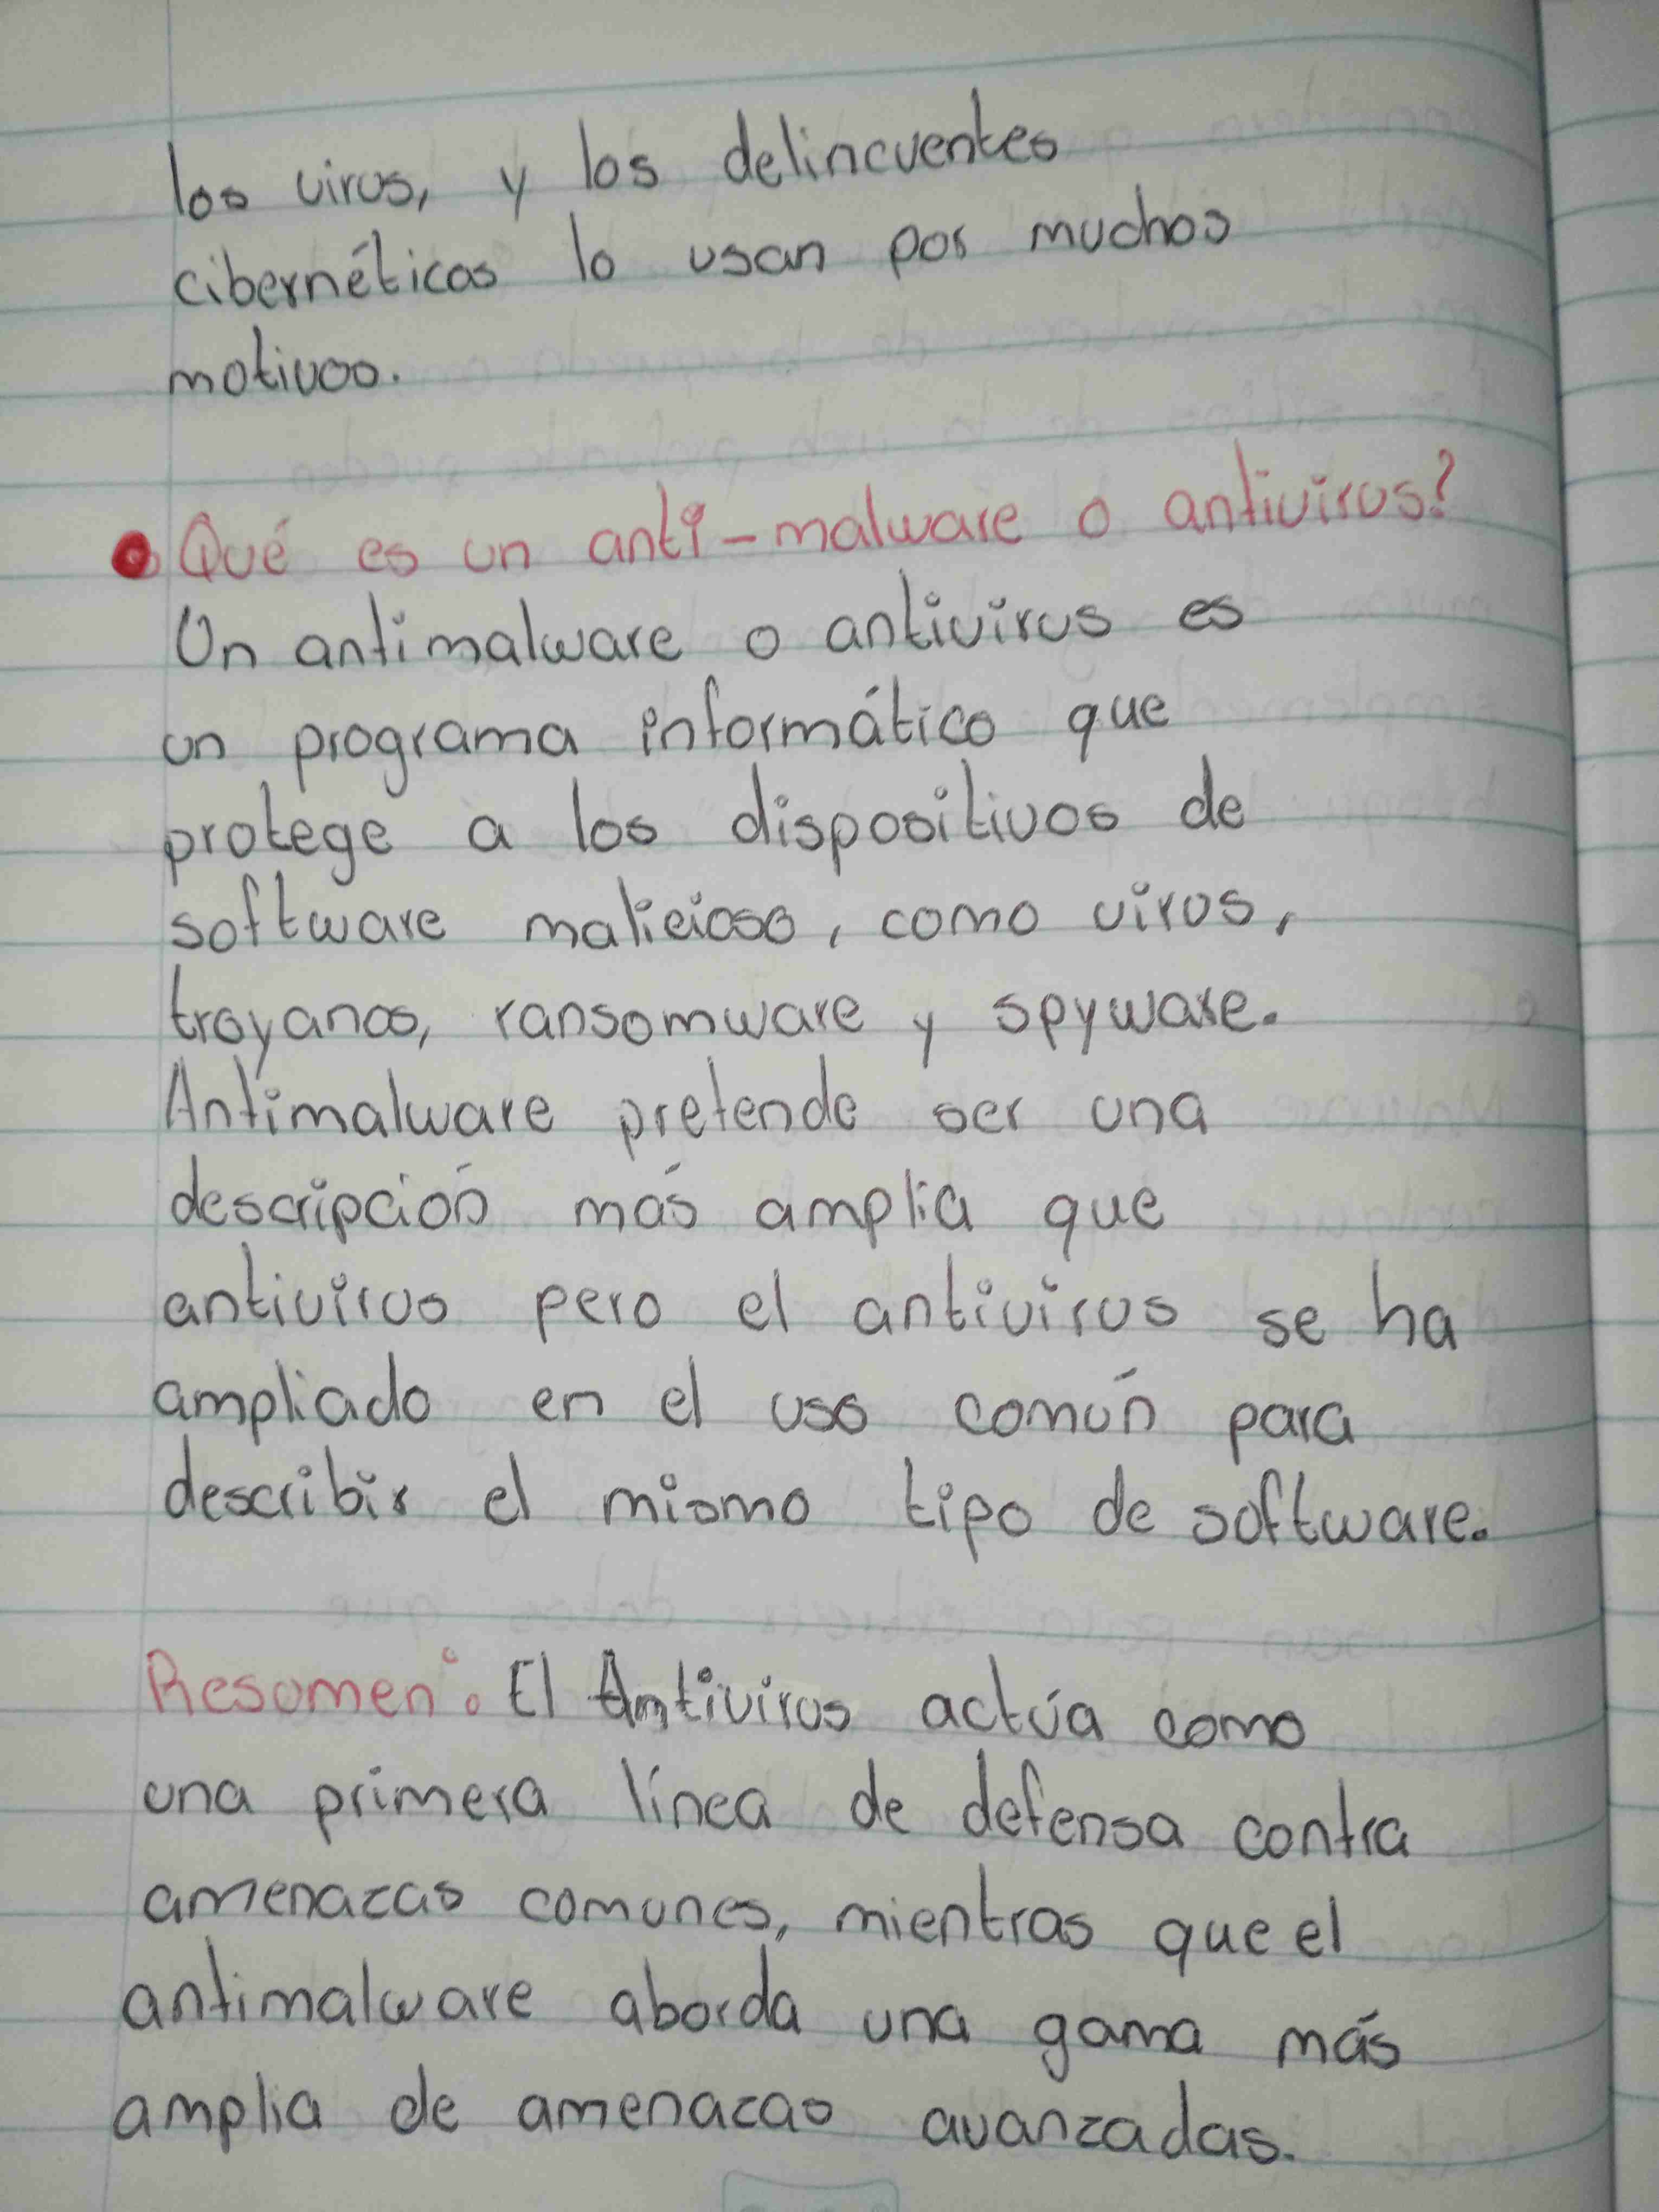 los virus, y los delincuentes
cibernéticos lo usan por muchos
motivos.
Qué es un anti-malware o antivirus?
Un antimalware o antivirus es
un programa informático que
protege a los dispositivos de
software malicioso, como virus,
troyanos, ransomware y spyware.
Antimalware pretende ser una
descripción más amplia que
antivirus pero el antivirus se ha
ampliado en el uso común para
describir el mismo tipo de software.
Resumen: El Antivirus actúa como
una primera línea de defensa contra
amenazas comunes, mientras que el
antimalware aborda una gama más
amplia de amenazas avanzadas.